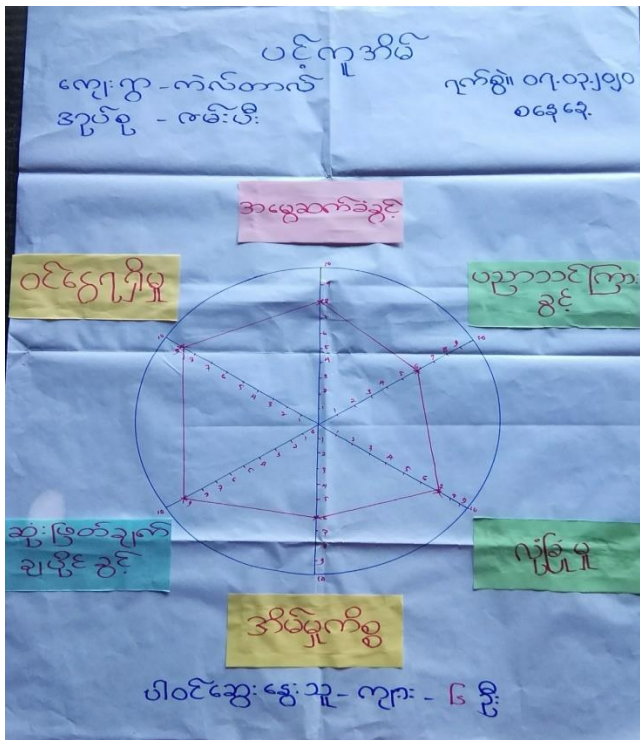 ပင့်ကူအိမ်
ကျေးရွာ - ကဲလ်တာလ်
ရက်စွဲ။ ၀၇.၀၃.၂၀၂၀
အုပ်စု - ဇမ်းပီး
စနေနေ့
အမွေဆက်ခံခွင့်
ဝင်ငွေရရှိမှု
ပညာသင်ကြား
ခွင့်
ဆုံးဖြတ်ချက်
ချပိုင်ခွင့်
လုံခြုံမှု
အိမ်မှုကိစ္စ
ပါဝင်ဆွေးနွေးသူ - ကျား - ၆ ဦး